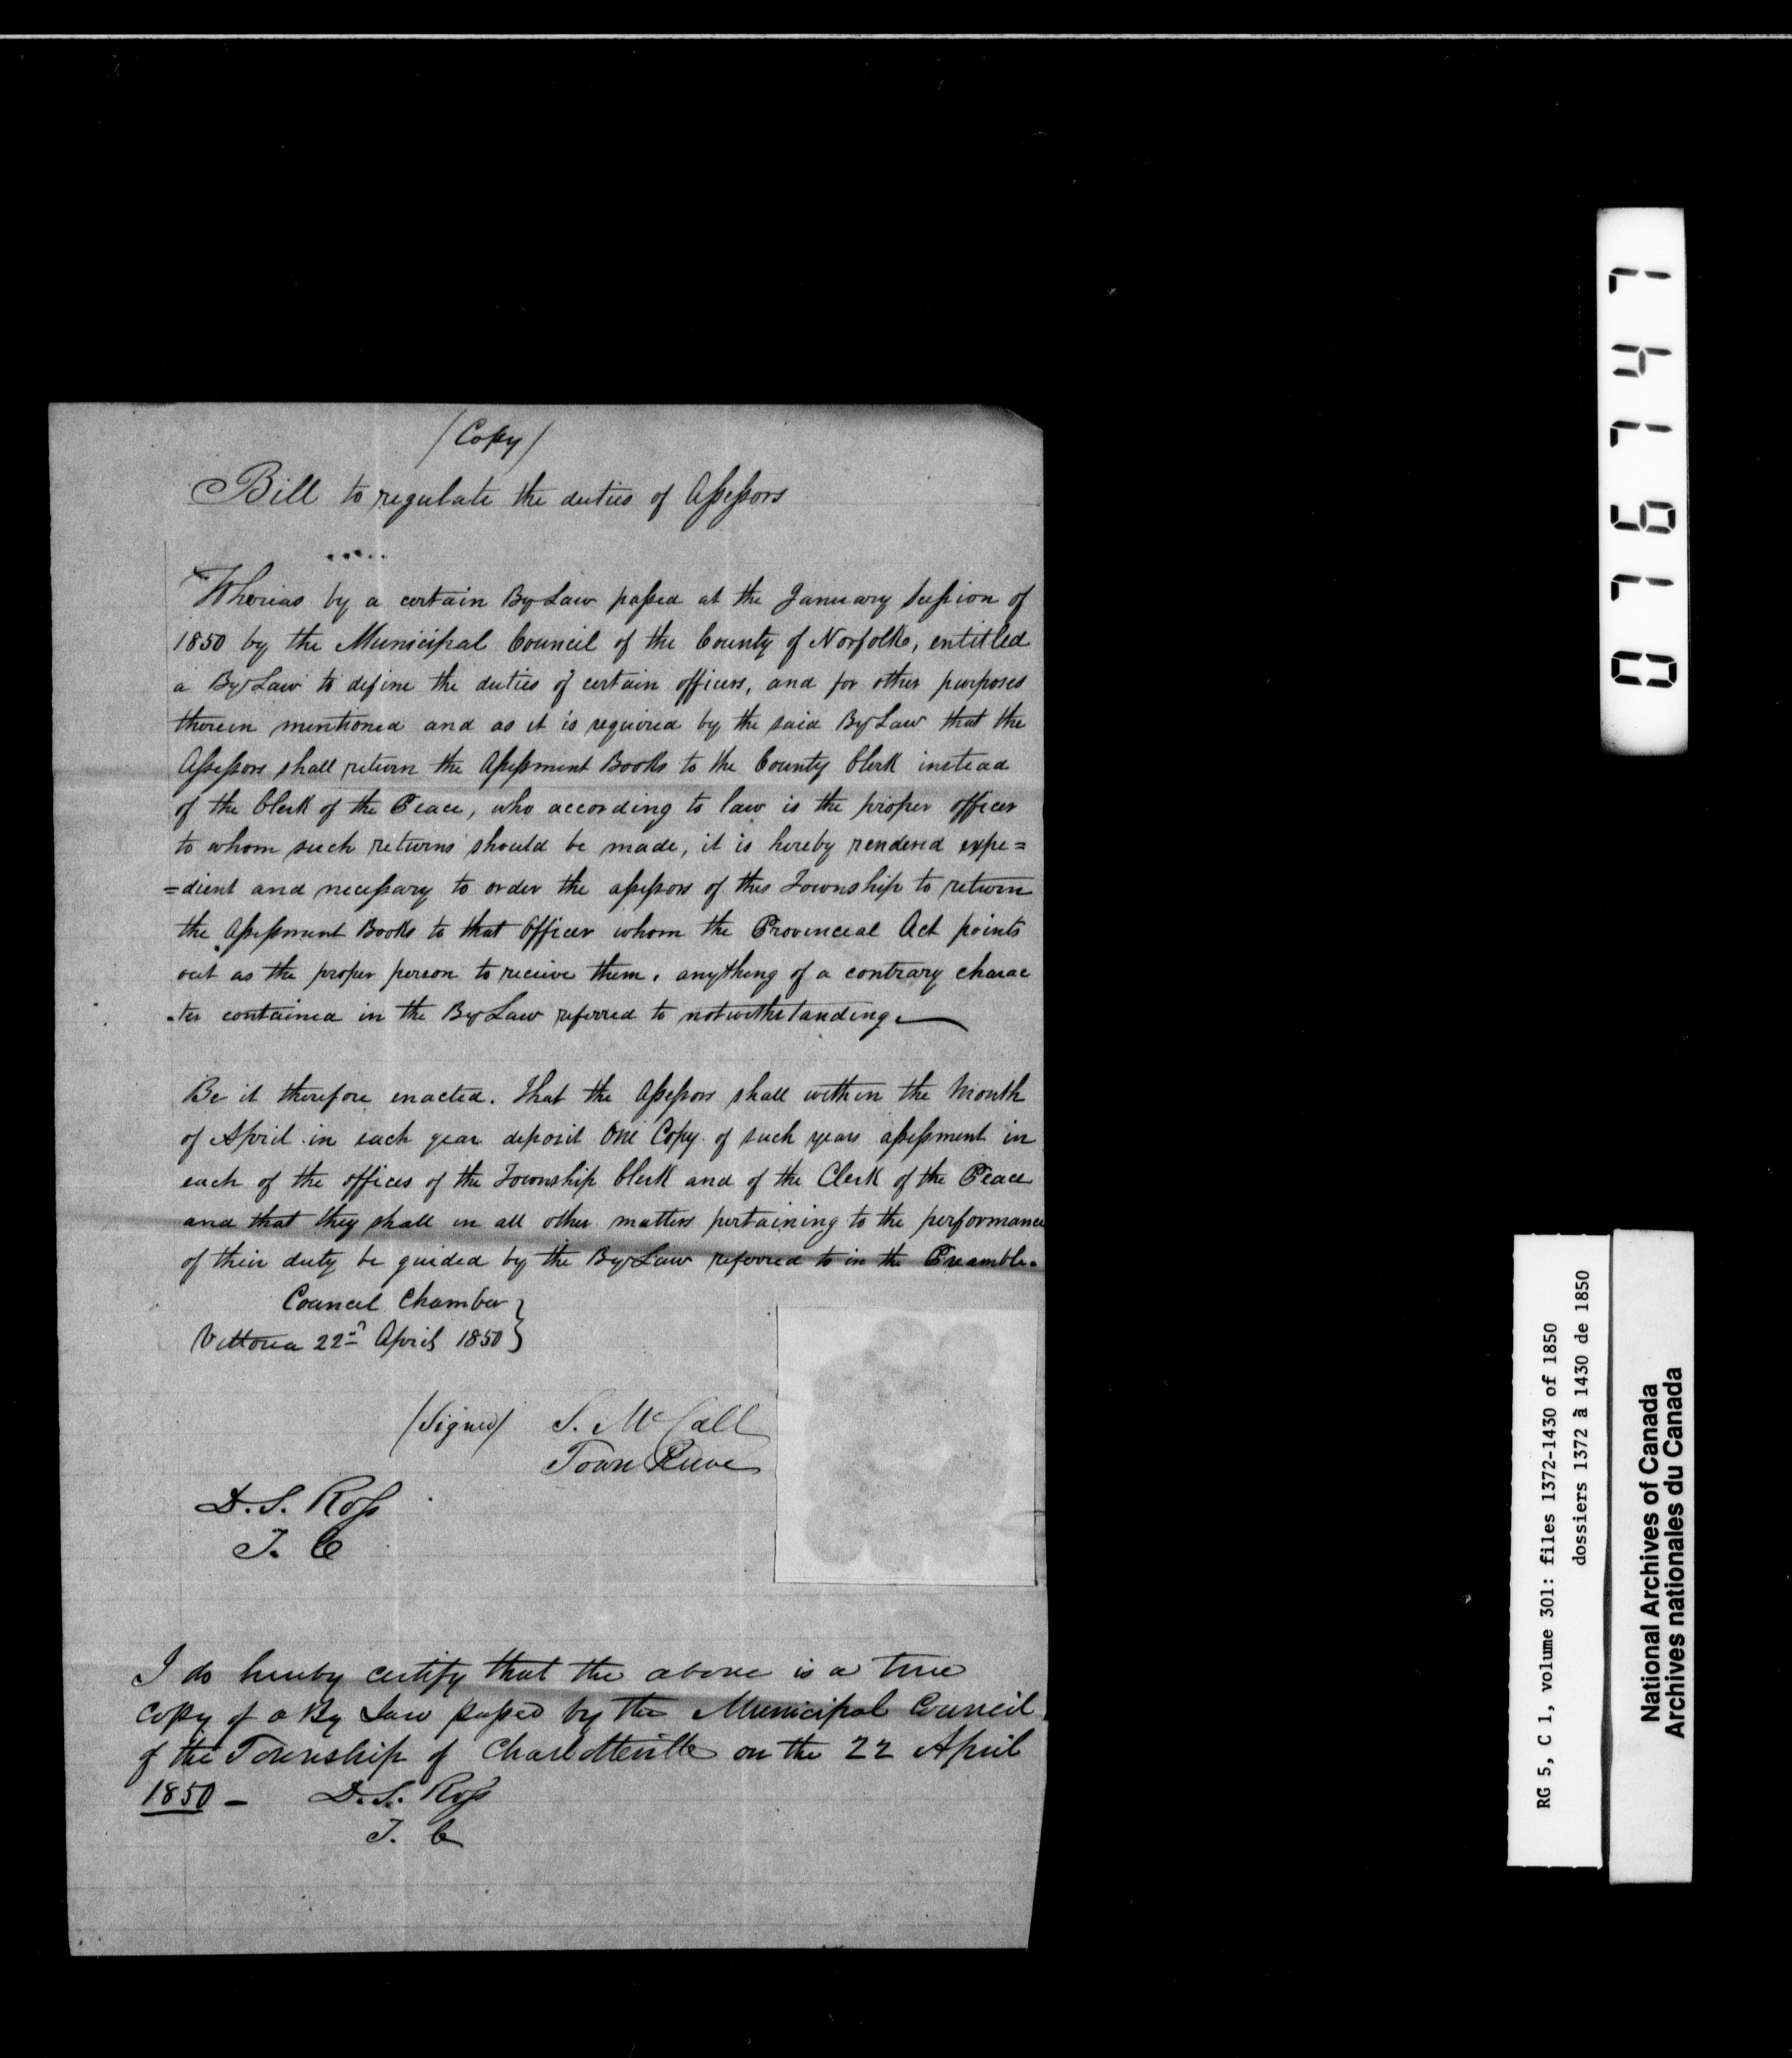 (Copy)
Bill to regulate the duties of Assessors
Whereas by a certain By Law passed at the January Session of
1850 by the Municipal Council of the County of Norfolk, entitled
a By Law to define the duties of certain officers, and for other purposes
therein mentioned and as it is required by the said By Law that the
Assessors shall return the Assessment Books to the County Clerk instead
of the Clerk of the Peace, who according to law is the proper officer
to whom such returns should be made, it is hereby rendered expe=
=dient and necessary to order the assessors of this Township to return
the Assessment Books to that Officer whom the Provincial Act points
out as the proper person to receive them, anything of a contrary charac
-ter contained in the By Law referred to notwithstanding.
Be it therefore enacted. That the Assessors shall within the Month
of April in each year deposit One Copy of such years assessment in
each of the offices of the Township Clerk and of the Clerk of the Peace
and that they shall in all other matters pertaining to the performance
of their duty be guided by the By Law referred to in the Preamble.
Council Chamber }
Vittoria 22nd April 1850 }
(Signed) S. McCall
Town Reeve
D. S. Ross
T. C
I do hereby certify that the above is a true
Copy of a By Law passed by the Municipal Council
of the Township of Charlotteville on the 22 April
1850 - D. S. Ross
T. C
076747
RG 5, C 1, volume 301: files 1372-1430 of 1850
dossiers 1372 à 1430 de 1850
National Archives of Canada
Archives nationales du Canada